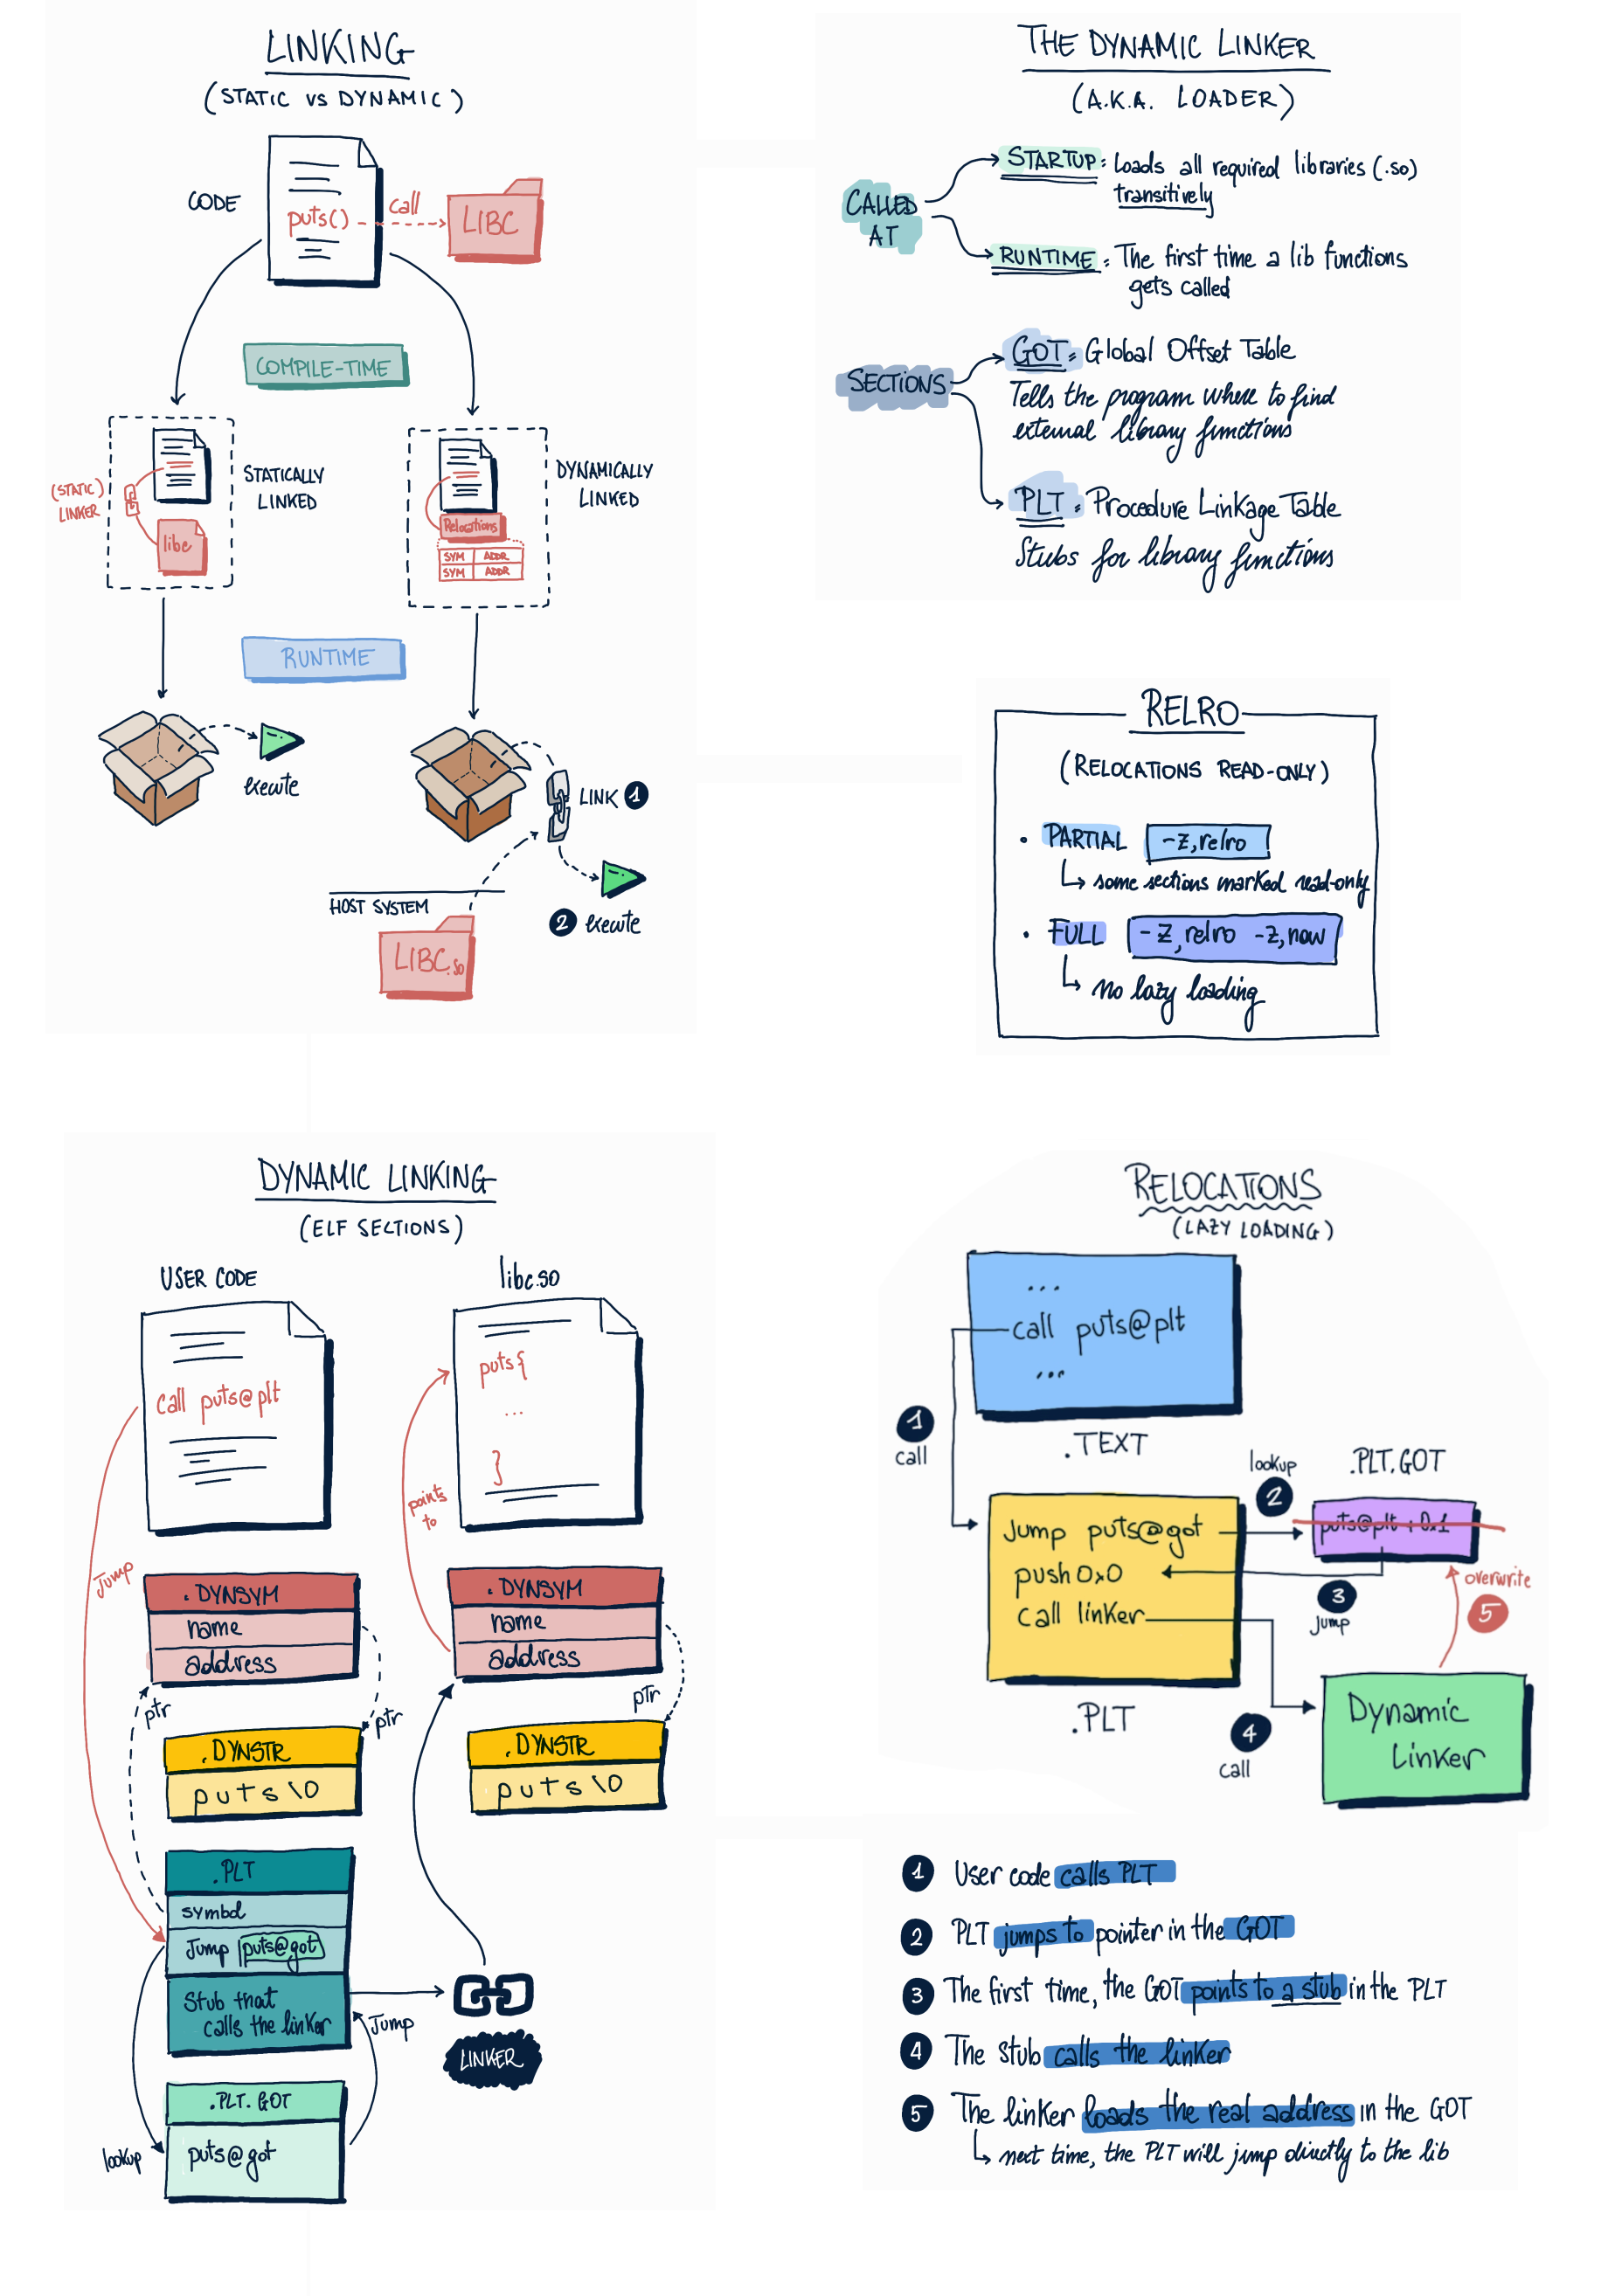 LINKING
(STATIC VS DYNAMIC)
CODE
puts()
call
LIBC
COMPILE-TIME
(STATIC)
LINKER
libc
STATICALLY
LINKED
Relocations
SYM ADDR
SYM ADDR
DYNAMICALLY
LINKED
RUNTIME
execute
LINK 1
HOST SYSTEM
LIBC.so
2 execute
THE DYNAMIC LINKER
(A.K.A. LOADER)
CALLED
AT
STARTUP: Loads all required libraries (.so)
transitively
RUNTIME: The first time a lib functions
gets called
SECTIONS
GOT: Global Offset Table
Tells the program where to find
external library functions
PLT: Procedure Linkage Table
Stubs for library functions
RELRO
(RELOCATIONS READ-ONLY)
• PARTIAL -z,relro
some sections marked read-only
• FULL -z,relro -z,now
no lazy loading
DYNAMIC LINKING
(ELF SECTIONS)
USER CODE
call puts@plt
Jump
.DYNSYM
name
address
ptr
ptr
.DYNSTR
puts\0
.PLT
symbol
Jump puts@got
Stub that
calls the linker
Jump
.PLT.GOT
puts@got
lookup
libc.so
puts{
...
}
points
to
.DYNSYM
name
address
ptr
.DYNSTR
puts\0
LINKER
RELOCATIONS
(LAZY LOADING)
...
call puts@plt
...
.TEXT
1
call
lookup
2
.PLT.GOT
puts@plt + 0x1
Jump puts@got
push 0x0
call linker
.PLT
3
jump
overwrite
5
4
call
Dynamic
Linker
1 User code calls PLT
2 PLT jumps to pointer in the GOT
3 The first time, the GOT points to a stub in the PLT
4 The stub calls the linker
5 The linker loads the real address in the GOT
next time, the PLT will jump directly to the lib